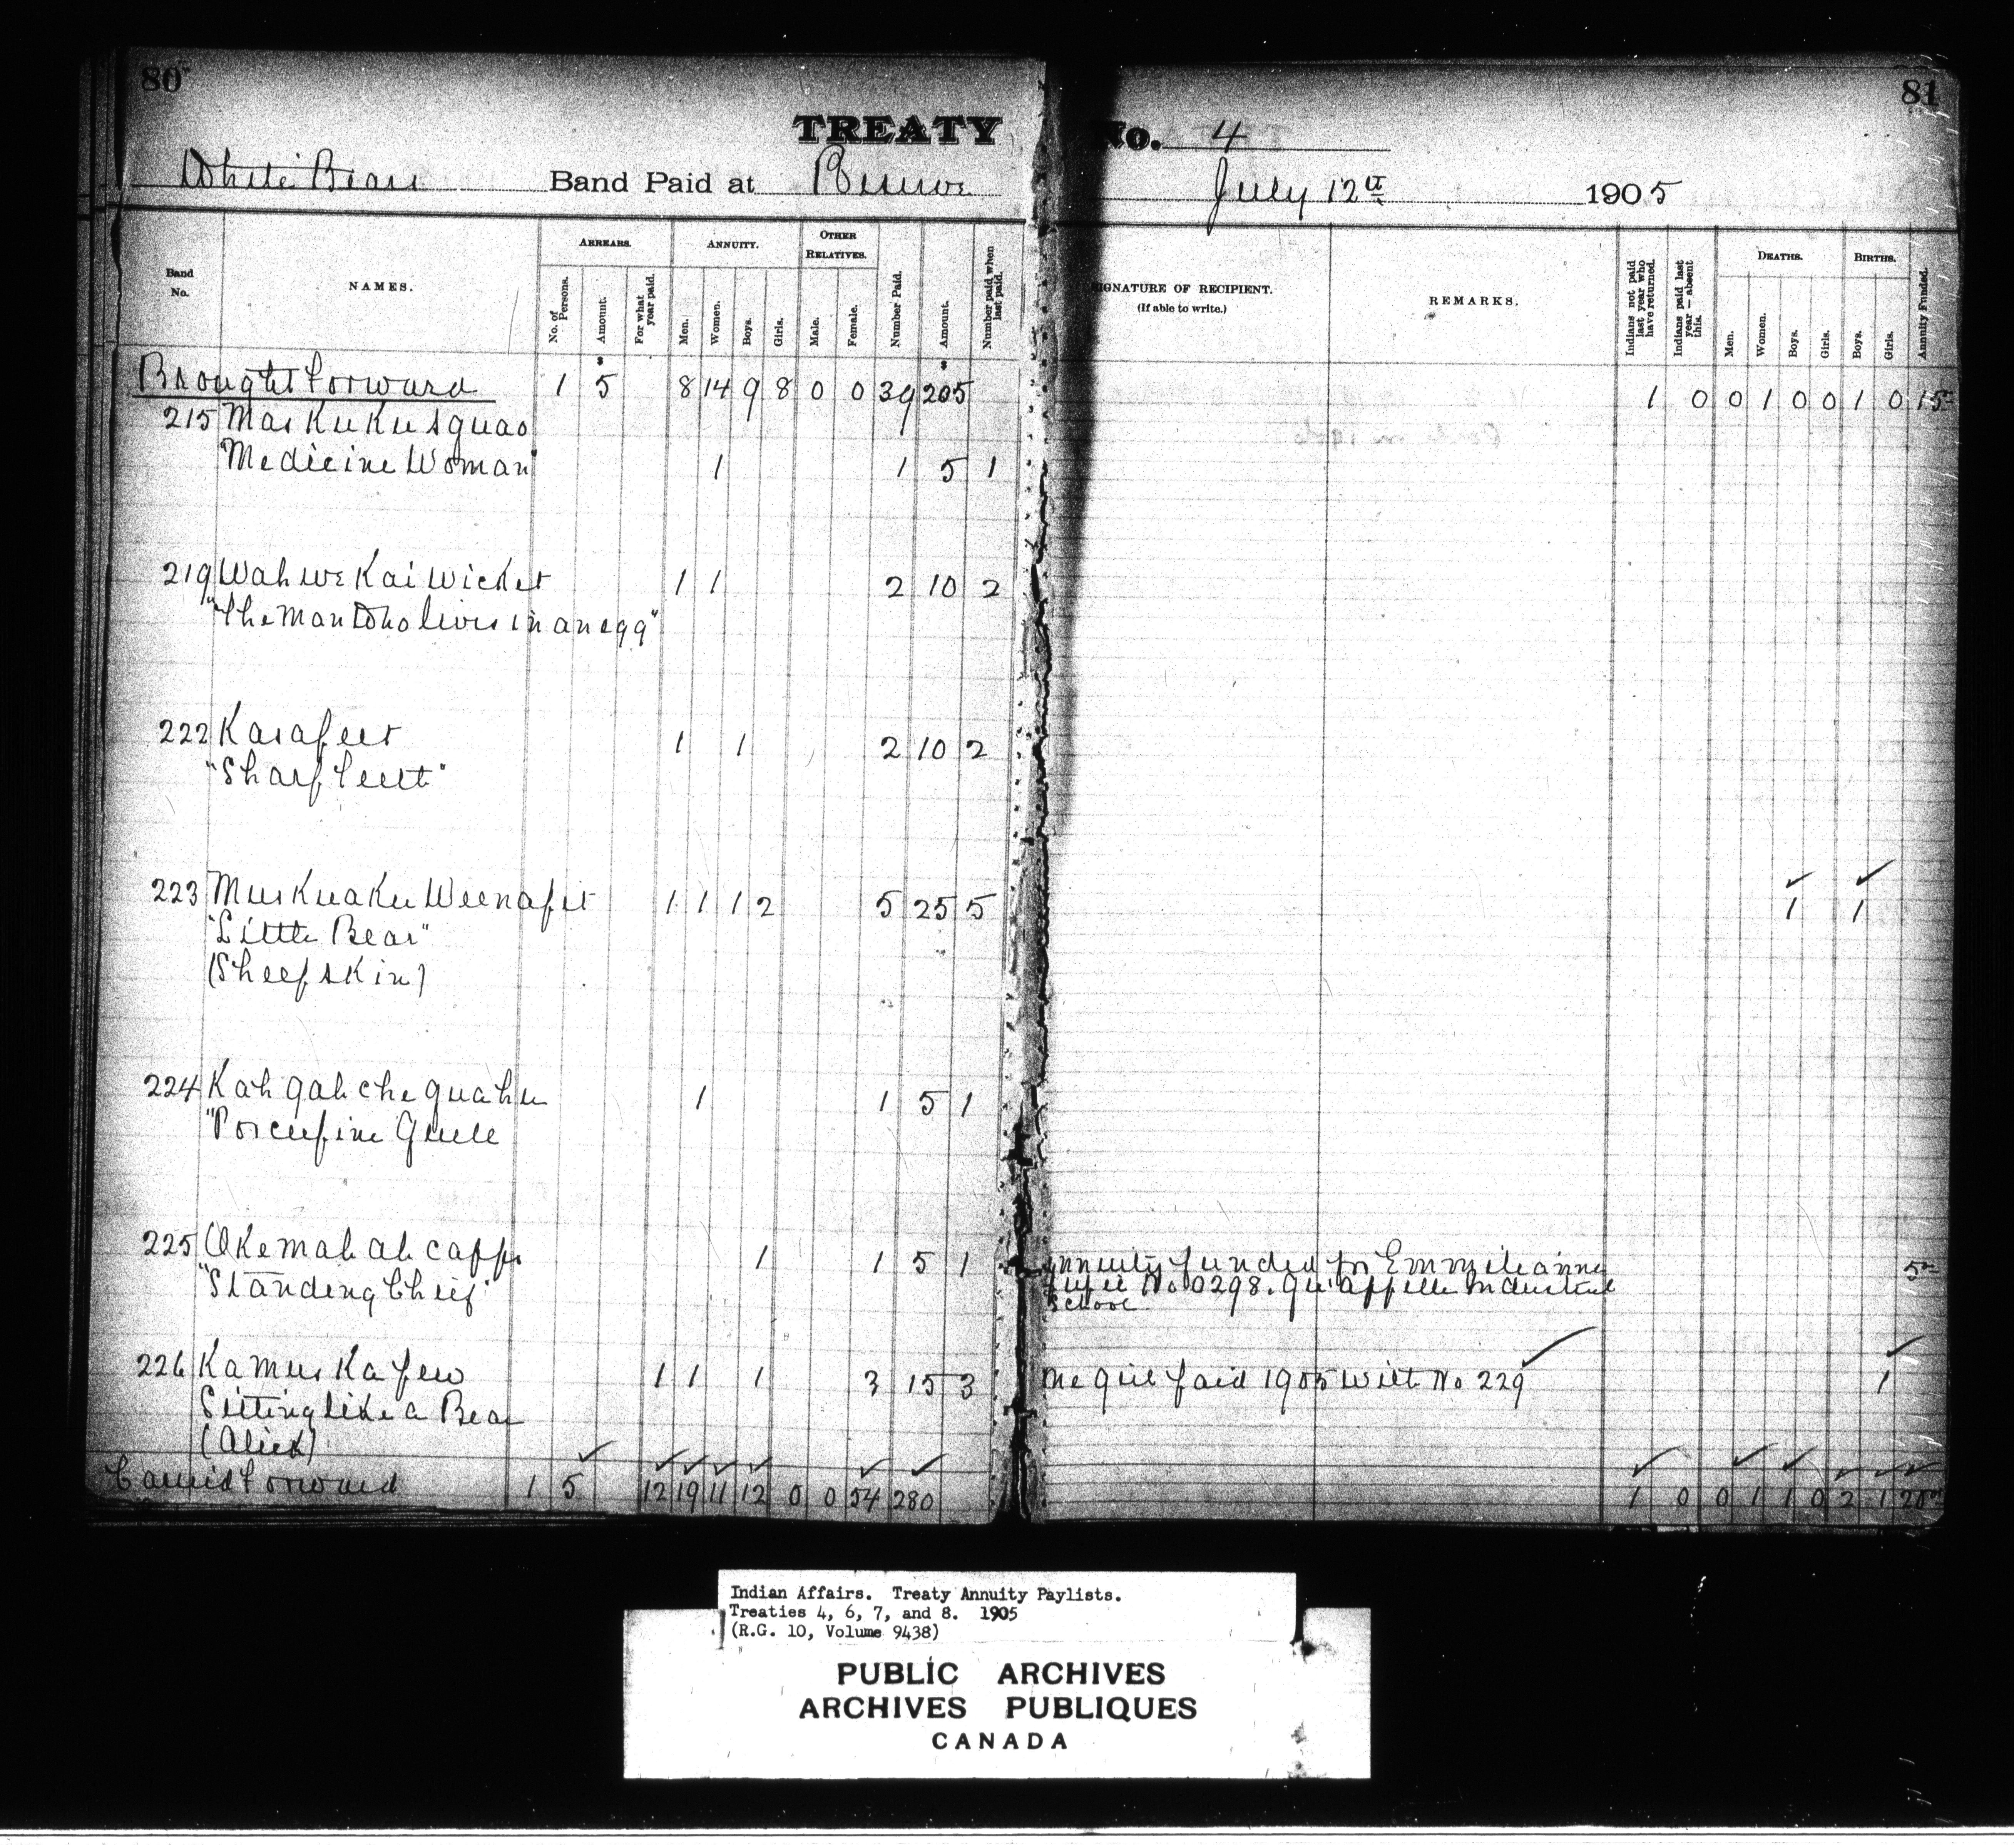 80
81
TREATY No. 4
White Bear Band Paid at Reserve July 12th 1905
Band No.
NAMES.
ARREARS.
No. of Persons.
Amount.
For what year paid.
ANNUITY.
Men.
Women.
Boys.
Girls.
OTHER RELATIVES.
Male.
Female.
Number Paid.
Amount.
Number paid when last paid.
SIGNATURE OF RECIPIENT.
(If able to write.)
REMARKS.
Indians not paid last year who have returned.
Indians paid last year — absent this.
DEATHS.
Men.
Women.
Boys.
Girls.
BIRTHS.
Boys.
Girls.
Annuity Funded.
Brought forward 1 5 8 14 9 8 0 0 39 205 1 0 0 1 0 0 1 0 15
215 Mas Ku Ku squao
"Medicine Woman" 1 1 5 1
219 Wah we Kai Wicket 1 1 2 10 2
"The Man Who lives in an egg"
222 Kasapeet 1 1 2 10 2
"Sharp Teeth"
223 Muskuaku Weenapit 1 1 1 2 5 25 5 1 1
"Little Bear"
(Sheepskin)
224 Kah gah che quahu 1 1 5 1
"Porcupine Quill
225 Okemah ah capp 1 1 5 1 Annuity funded for
"Standing Chief" No 0298. Qu'appelle Industrial 5
School
226 Kamuskapew 1 1 1 3 15 3 paid 1905 with No 229 1
Sitting like a Bear
(Alick)
Carried forward 1 5 12 19 11 12 0 0 54 280 1 0 0 1 1 0 2 1 20
Indian Affairs. Treaty Annuity Paylists.
Treaties 4, 6, 7, and 8. 1905
(R.G. 10, Volume 9438)
PUBLIC ARCHIVES
ARCHIVES PUBLIQUES
CANADA